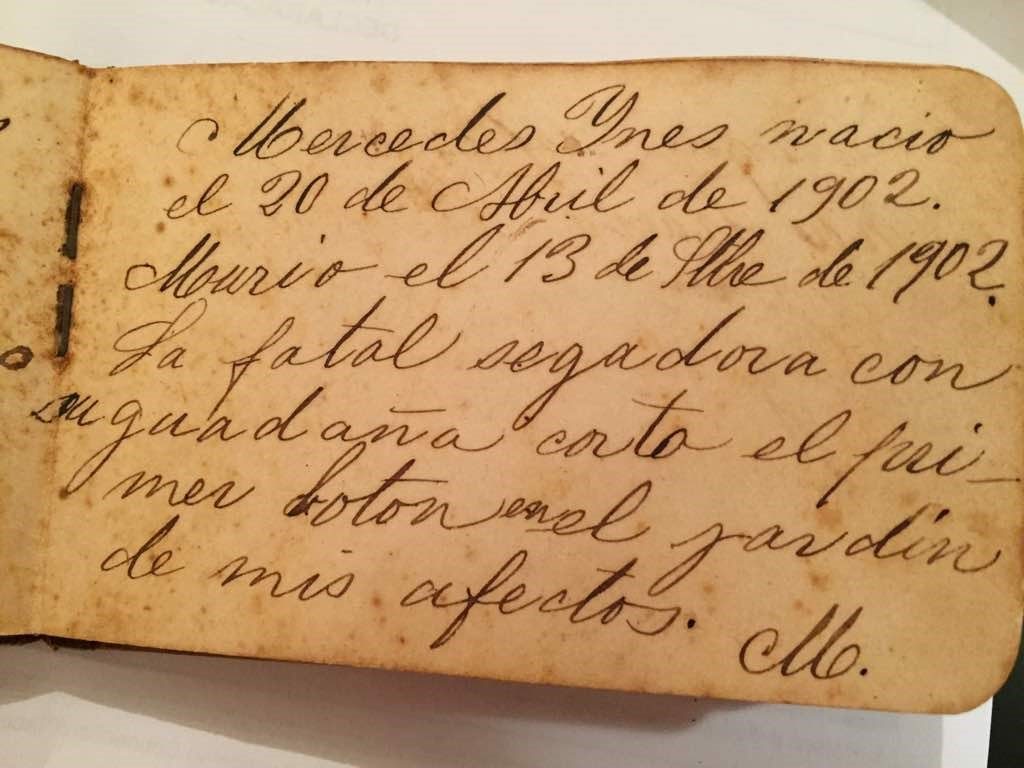 Mercedes Ynes nacio
el 20 de Abril de 1902.
Murio el 13 de Stbre de 1902.
La fatal segadora con
su guadaña corto el pri-
mer boton en el jardin
de mis afectos.
M.